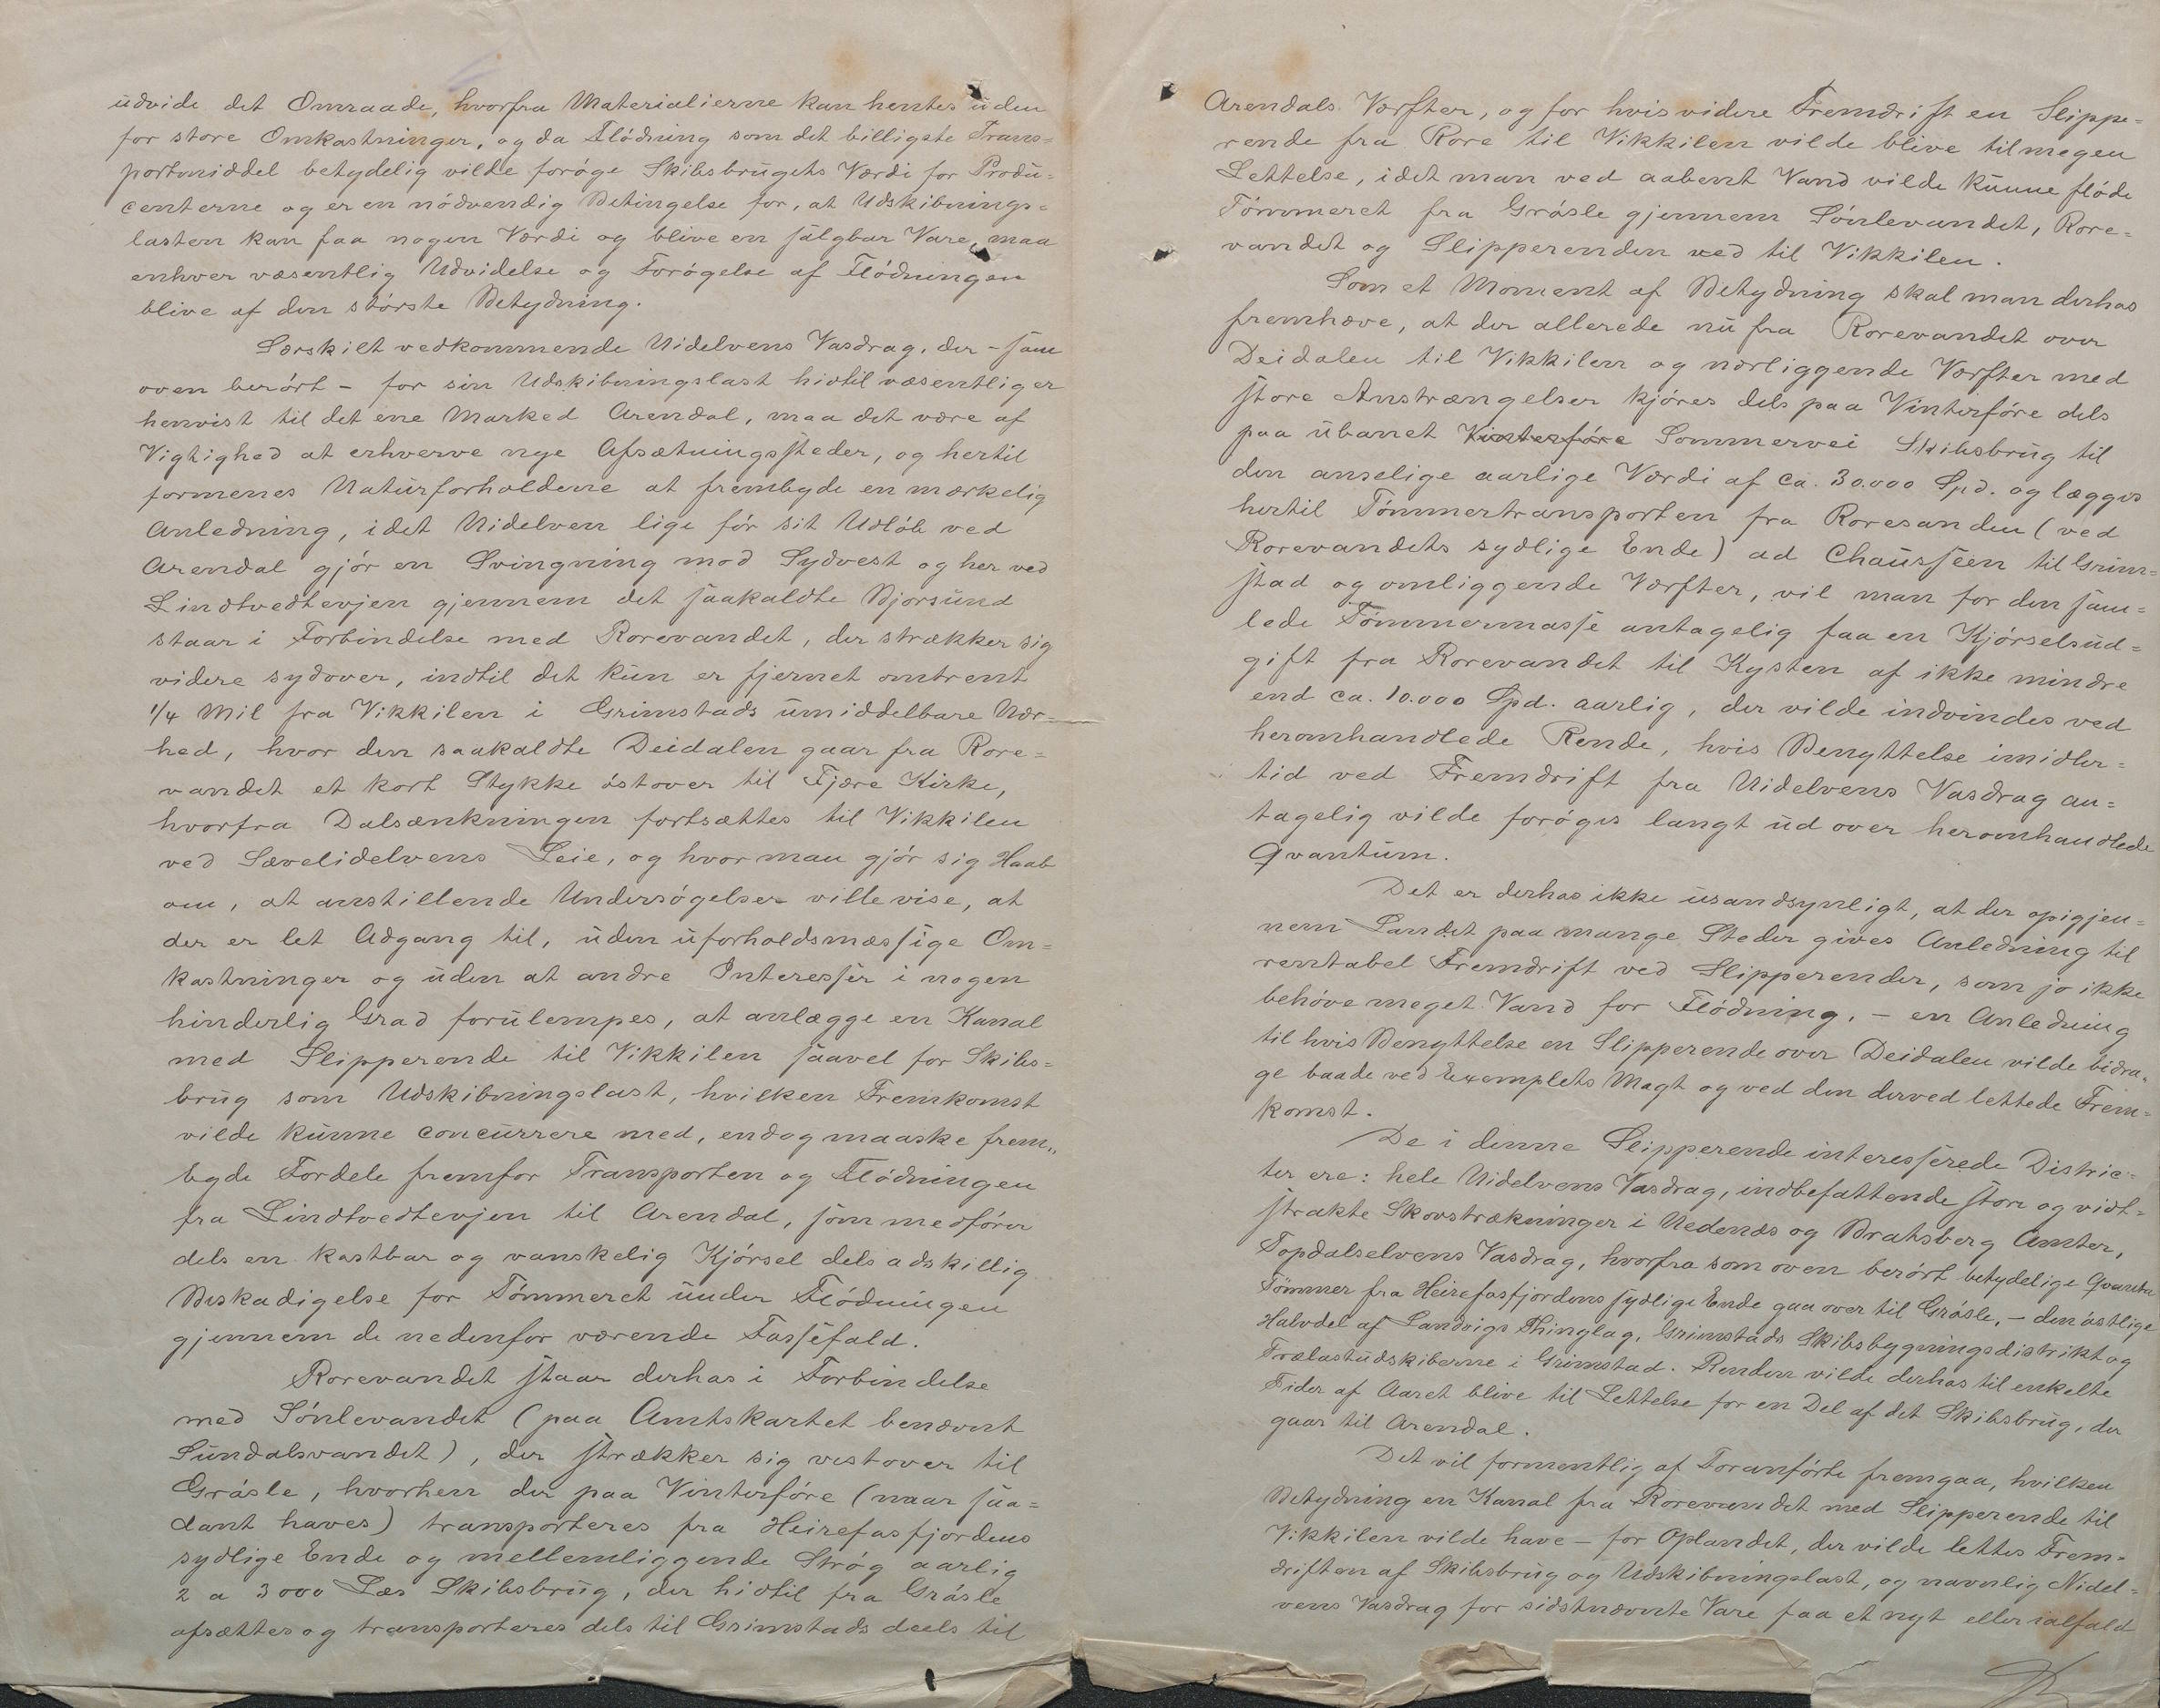 udvide det Omraade, hvorfra Materialierne kan hentes uden
for store Omkastninger, og da Flödning som det billigste Trans=
portmiddel betydelig vilde foröge Skibsbrugets Værdi for Produ=
centerne og er en nödvendig Betingelse for, at Udskibnings=
lasten kan faa nogen Værdi og blive en salgbar Vare, maa
enhver væsentlig Udvidelse og Forögelse af Flödningen
blive af den störste Betydning.
Særskilt vedkommende Nidelvens Vasdrag, der – som
oven berört – for sin Udskibningslast hidtil væsentlig er
henvist til det ene Marked Arendal, maa det være af
Vigtighed at erhverve nye Afsætningssteder, og hertil
formenes Naturforholdene at frembyde en mærkelig
Anledning, idet Nidelven lige för sit Udlöb ved
Arendal gjör en Svingning mod Sydvest og her ved
Lindtvedtevjen gjennem det saakaldte Bjorsund
staar i Forbindelse med Rorevandet, der strækker sig
videre sydover, indtil det kun er fjernet omtrent
1/4 Mil fra Vikkilen i Grimstads umiddelbare Nær=
hed, hvor den saakaldte Deidalen gaar fra Rore=
vandet et kort Stykke östover til Fjære Kirke,
hvorfra Dalsænkningen fortsættes til Vikkilen
ved Sævelidelvens Leie, og hvor man gjör sig Haab
om, at anstillende Undersögelser ville vise, at
der er let Adgang til, uden uforholdsmæssige Om=
kastninger og uden at andre Interesser i nogen
hinderlig Grad forulempes, at anlægge en Kanal
med Slipperende til Vikkilen saavel for Skibs=
brug som Udskibningslast, hvilken Fremkomst
vilde kunne concurrere med, endog maaske frem„
byde Fordele fremfor Transporten og Flödningen
fra Lindtvedtevjen til Arendal, som medförer
dels en kostbar og vanskelig Kjörsel dels adskillig
Beskadigelse for Tömmeret under Flödningen
gjennem de nedenfor værende Fossefald.
Rorevandet staar derhos i Forbindelse
med Sönlevandet (paa Amtskartet benævnt
Sundalsvandet), der strækker sig vestover til
Gråsle, hvorhen der paa Vinterföre (naar saa=
dant haves) transporteres fra Heirefosfjordens
sydlige Ende og mellemliggende Strög aarlig
2 a 3000 Læs Skibsbrug, der hidtil fra Gråsle
afsættes og transporteres dels til Grimstads deels til
Arendals Værfter, og for hvis videre Fremdrift en Slippe=
rende fra Rore til Vikkilen vilde blive til megen
Lettelse, idet man ved aabent Vand vilde kunne flöde
Tömmeret fra Gråsle gjennem Sönlevandet, Rore=
vandet og Slipperenden ved til Vikkilen.
Som et Moment af Betydning skal man derhos
fremhæve, at der allerede nu fra Rorevandet over
Deidalen til Vikkilen og nærliggende Værfter med
store Anstrængelser kjöres dels paa Vinterföre dels
paa ubanet Vinterföre Sommervei Skibsbrug til
den anselige aarlige Værdi af ca. 30.000 Spd. og lægges
hertil Tömmertransporten fra Roresanden (ved
Rorevandets sydlige Ende) ad Chausséen til Grim=
stad og omliggende Værfter, vil man for den sam=
lede Tömmermasse antagelig faa en Kjörselsud=
gift fra Rorevandet til Kysten af ikke mindre
end ca. 10.000 Spd. aarlig, der vilde indvindes ved
heromhandlede Rende, hvis Benyttelse imidler=
tid ved Fremdrift fra Nidelvens Vasdrag an=
tagelig vilde foröges langt ud over heromhandlede
Qvantum.
Det er derhos ikke usandsynligt, at der opigjen=
nem Landet paa mange Steder gives Anledning til
rentabel Fremdrift ved Slipperender, som jo ikke
behöve meget Vand for Flödning, – en Anledning
til hvis Benyttelse en Slipperende over Deidalen vilde bidra„
ge baade ved Exemplets Magt og ved den derved lettede Frem=
komst.
De i denne Slipperende interesserede Distric=
ter ere: hele Nidelvens Vasdrag, indbefattende store og vidt=
strakte Skovstrækninger i Nedenæs og Bratsberg Amter,
Topdalselvens Vasdrag, hvorfra som oven berört betydelige Qvanta
Tömmer fra Heirefosfjordens sydlige Ende gaa over til Gråsle, – den östlige
Halvdel af Landvigs Thinglag, Grimstads Skibsbygningsdistrikt og
Trælastudskiberne i Grimstad. Renden vilde derhos til enkelte
Tider af Aaret blive til Lettelse for en Del af det Skibsbrug, der
gaar til Arendal.
Det vil formentlig af Foranförte fremgaa, hvilken
Betydning en Kanal fra Rorevandet med Slipperende til
Vikkilen vilde have – for Oplandet, der vilde lettes Frem=
driften af Skibsbrug og Udskibningslast, og navnlig Nidel=
vens Vasdrag for sidstnævnte Vare faa et nyt eller ialfald